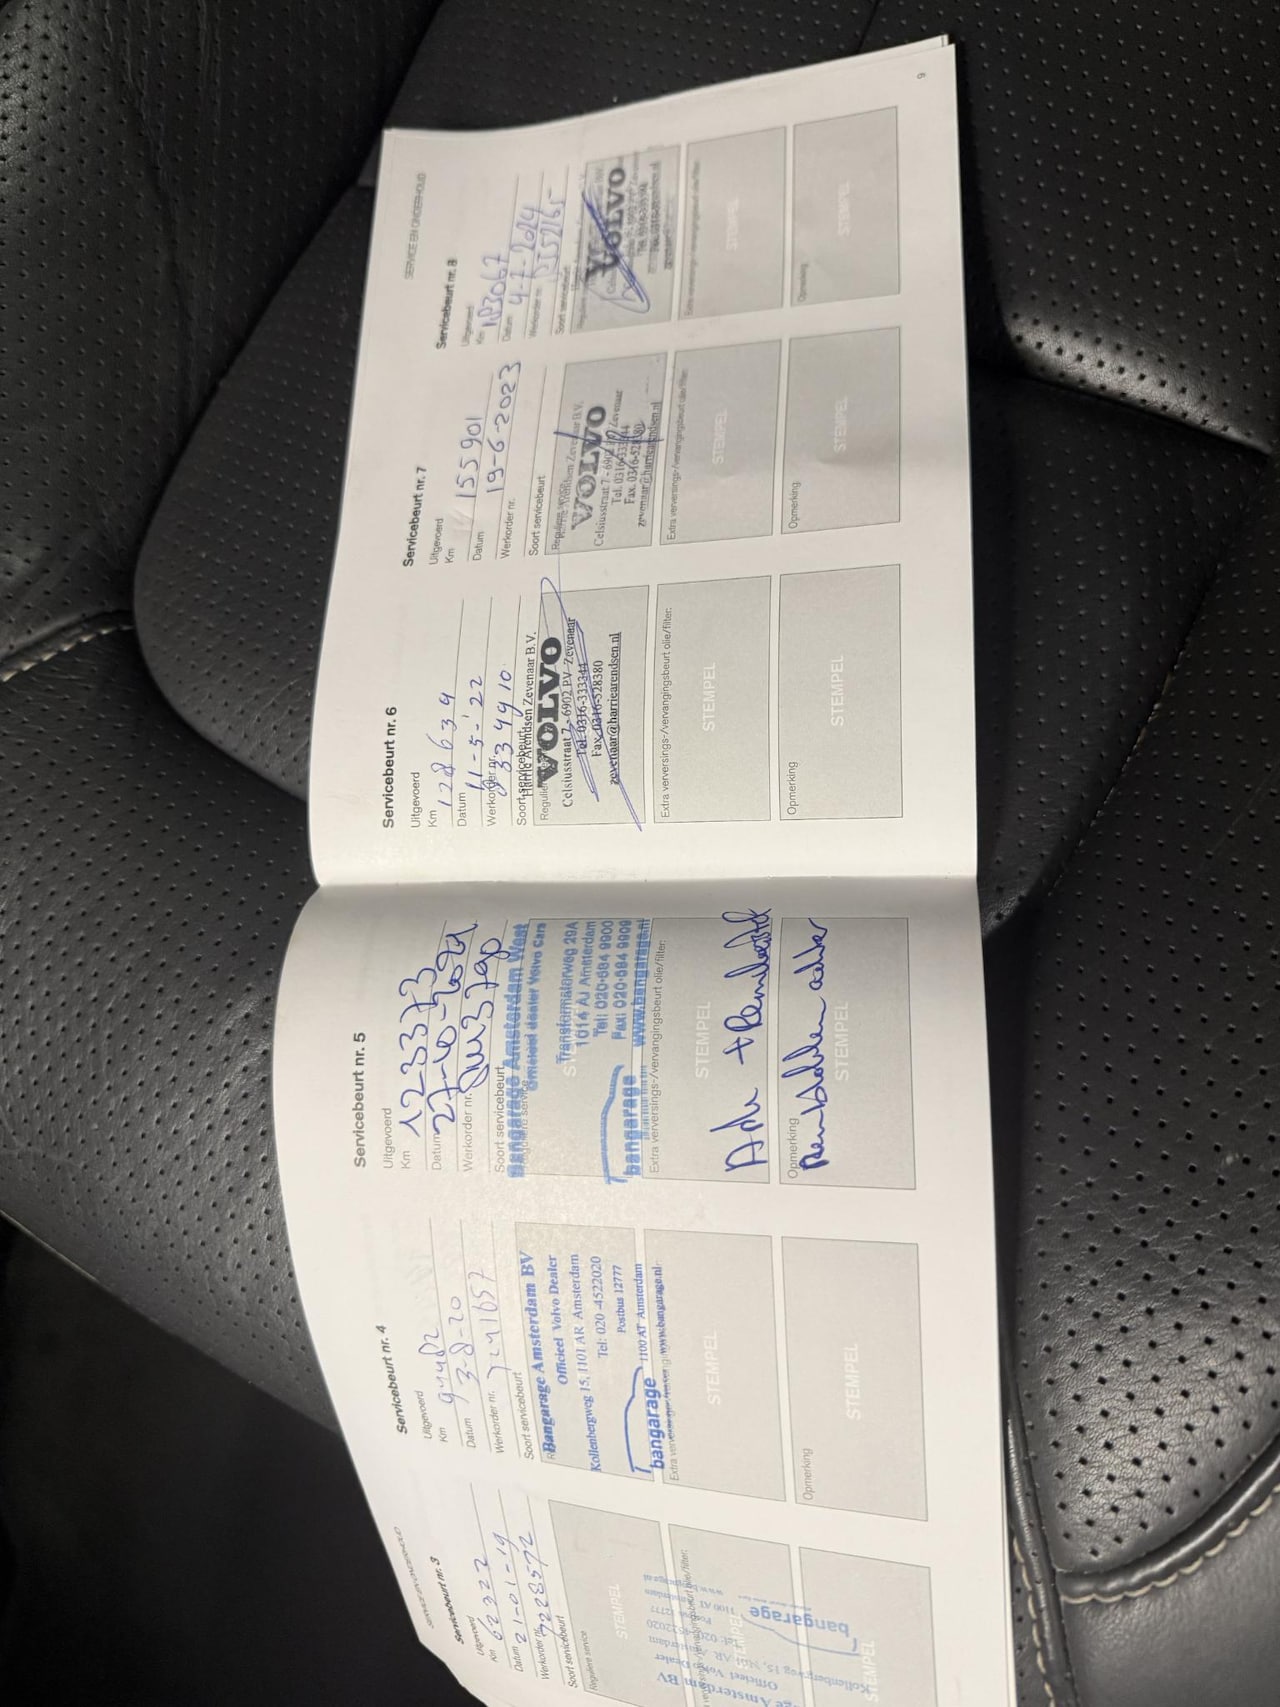 SERVICE EN ONDERHOUD
Servicebeurt nr. 3
Uitgevoerd
Km 62322
Datum 21-01-19
Werkorder nr. 7228572
Soort servicebeurt
Reguliere service
STEMPEL
Officieel Volvo Dealer
bangarage
STEMPEL
Servicebeurt nr. 4
Uitgevoerd
Km 94482
Datum 3-8-20
Werkorder nr.
Soort servicebeurt
Bangarage Amsterdam BV
Officieel Volvo Dealer
Kollenbergweg 15, 1101 AR Amsterdam
Tel: 020-4522020
Postbus 12777
1100 AT Amsterdam
bangarage www.bangarage.nl
STEMPEL
Opmerking
STEMPEL
Servicebeurt nr. 5
Uitgevoerd
Km 123373
Datum 27-10-2021
Werkorder nr.
Soort servicebeurt
Bangarage Amsterdam West
Officieel dealer Volvo Cars
Transformatorweg 29A
1014 AJ Amsterdam
Tel: 020-684 9900
Fax: 020-684 9909
bangarage www.bangarage.nl
Extra verversings-/vervangingsbeurt olie/filter:
STEMPEL
Opmerking
Remblokken achter
STEMPEL
Servicebeurt nr. 6
Uitgevoerd
Km 128639
Datum 11-5-'22
Werkorder nr.
334910
Soort servicebeurt
Harrie Arendsen Zevenaar B.V.
VOLVO
Celsiusstraat 7 - 6902 PV Zevenaar
Tel. 0316-333344
Fax. 0316-528380
zevenaar@harriearendsen.nl
Extra verversings-/vervangingsbeurt olie/filter:
STEMPEL
Opmerking
STEMPEL
Servicebeurt nr. 7
Uitgevoerd
Km 155901
Datum 19-6-2023
Werkorder nr.
Soort servicebeurt
Reguliere service
Harrie Arendsen Zevenaar B.V.
VOLVO
Celsiusstraat 7 - 6902 PV Zevenaar
Tel. 0316-333344
Fax. 0316-528380
zevenaar@harriearendsen.nl
Extra verversings-/vervangingsbeurt olie/filter:
STEMPEL
Opmerking
STEMPEL
SERVICE EN ONDERHOUD
Servicebeurt nr. 8
Uitgevoerd
Km
Datum 4-7-2024
Werkorder nr.
Soort servicebeurt
VOLVO
Extra verversings-/vervangingsbeurt olie/filter:
STEMPEL
Opmerking
STEMPEL
9